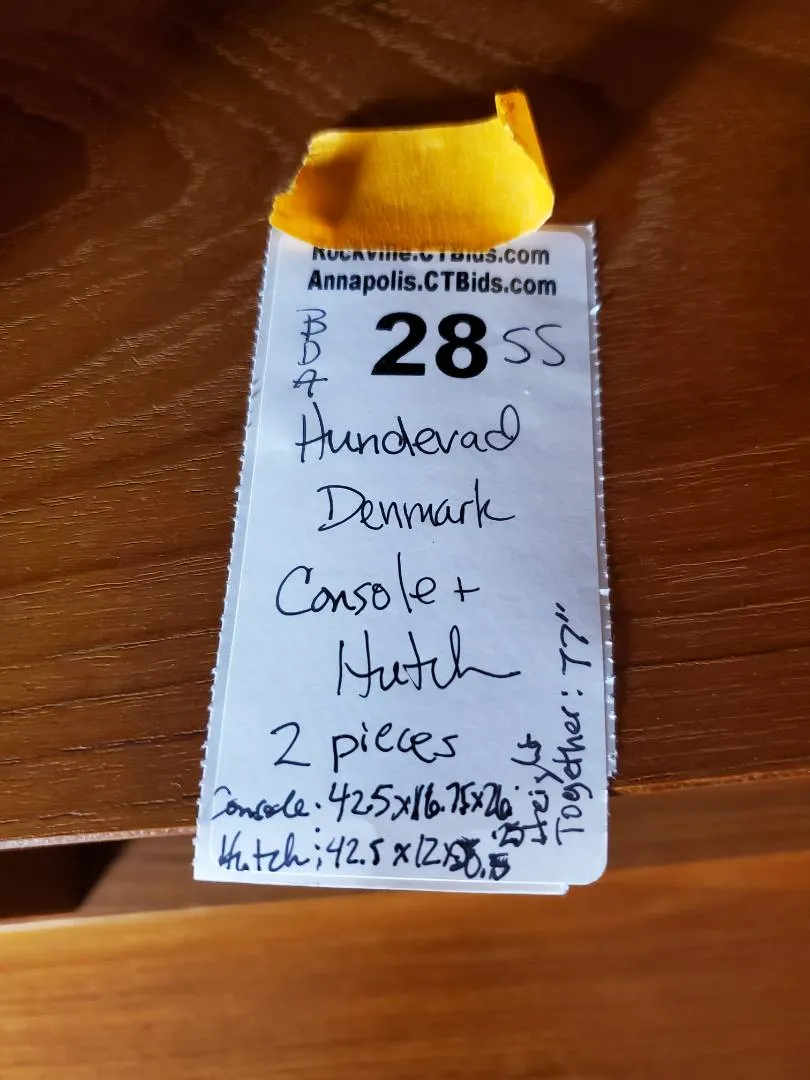 Rockville.CTBids.com
Annapolis.CTBids.com
BDA
28 SS
Hundevad
Denmark
Console +
Hutch
2 pieces
Console. 42.5x16.75x26.25
Hutch: 42.5 x 12 x
Height
Together: 77"